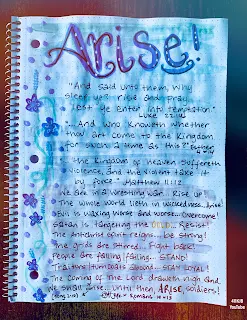 Arise!
"And said unto them, Why
sleep ye? rise and pray,
lest ye enter into temptation."
Luke 22:46
"... And who knoweth whether
thou art come to the kingdom
for such a time as this?" Esther
4:14
... the kingdom of heaven suffereth
violence, and the violent take it
by force." Matthew 11:12
We are in a wrestling war. Rise up!
The whole world lieth in wickedness... Arise
Evil is waxing worse and worse... Overcome!
Satan is targeting the ... Resist!
The antichrist spirit reigns... be strong!
The gods are stirred... Fight back!
People are falling, falling... STAND!
Traitors, turncoats abound... STAY LOYAL!
The coming of the Lord draweth nigh and
we shall arise... until then, ARISE, soldiers!
Romans 16:13
YouTube